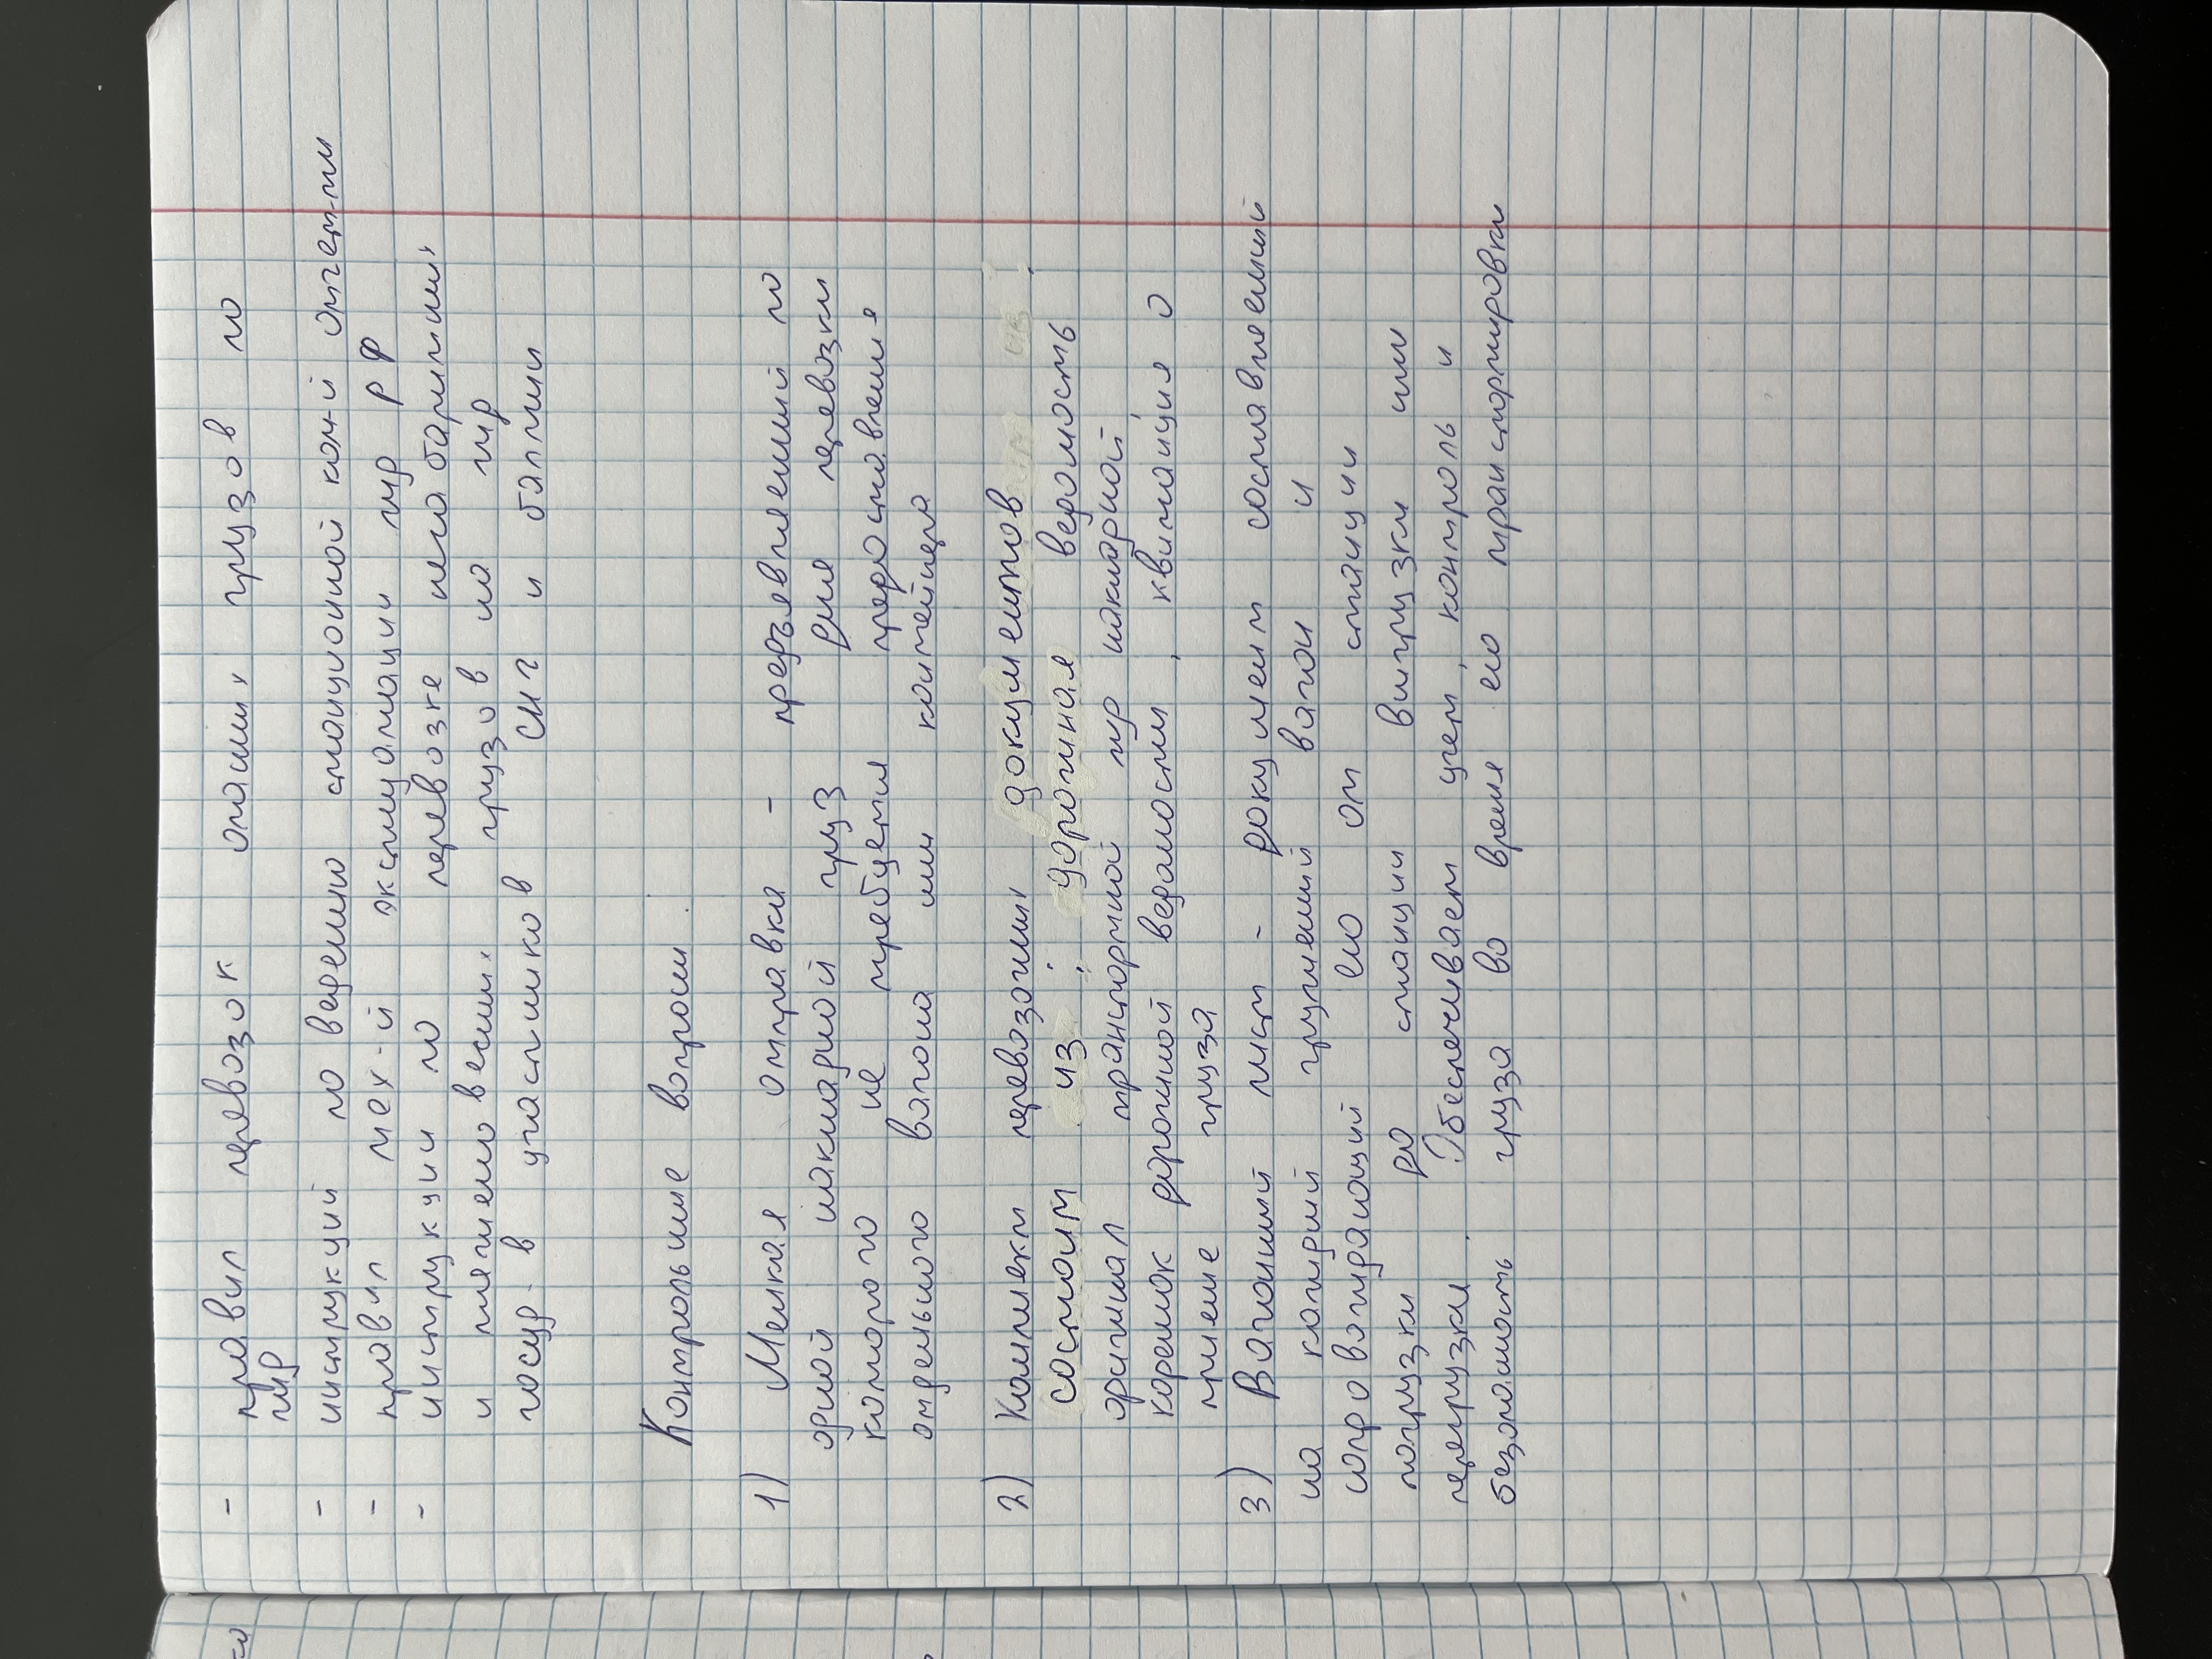 - правил перевозок опасных грузов по
жд
- инструкций по ведению станционной ком-й отчет-ти
- правил тех-й эксплуатации жд РФ
- инструкции по перевозке негабаритных
и тяжеловесных грузов на жд
госуд. в участников СНГ и балтии
Контрольные вопросы.
1) Мелкая отправка - предъявленный по
одной накладной груз для перевозки
которого не требуется предоставления
отдельного вагона или контейнера
2) Комплект перевозочных документов
состоит из: дорожная ведомость
оригинал транспортной жд накладной
корешок дорожной ведомости, квитанция о
приеме груза
3) Вагонный лист - документ составленный
на каждый груженный вагон и
сопровождающий его от станции
погрузки до станции выгрузки или
перегрузки. Обеспечивает учет, контроль и
безопасность груза во время его транспортировки